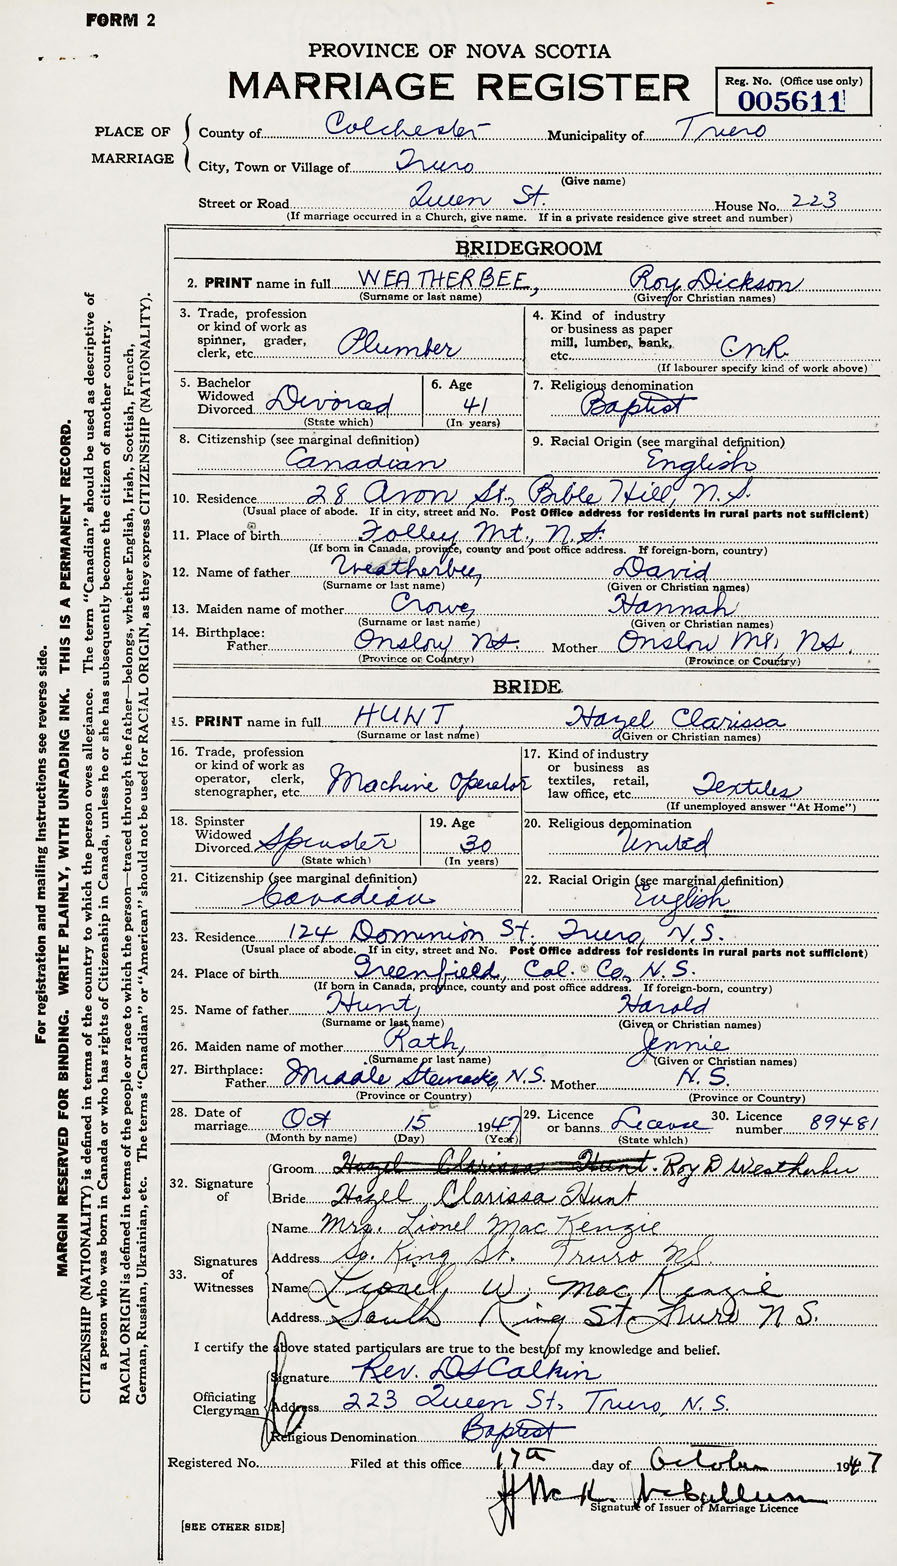 FORM 2
PROVINCE OF NOVA SCOTIA
MARRIAGE REGISTER
Reg. No. (Office use only)
005611
PLACE OF MARRIAGE
County of Colchester Municipality of Truro
City, Town or Village of Truro
(Give name)
Street or Road Queen St. House No. 223
(If marriage occurred in a Church, give name. If in a private residence give street and number)
BRIDEGROOM
2. PRINT name in full WEATHERBEE, Roy Dickson
(Surname or last name) (Given or Christian names)
3. Trade, profession or kind of work as spinner, grader, clerk, etc. Plumber
4. Kind of industry or business as paper mill, lumber, bank, etc. CNR
(If labourer specify kind of work above)
5. Bachelor Widowed Divorced Divorced
(State which)
6. Age 41
(In years)
7. Religious denomination
Baptist
8. Citizenship (see marginal definition)
Canadian
9. Racial Origin (see marginal definition)
English
10. Residence 28 Avon St., Bible Hill, N.S.
(Usual place of abode. If in city, street and No. Post Office address for residents in rural parts not sufficient)
11. Place of birth Folley Mt., N.S.
(If born in Canada, province, county and post office address. If foreign-born, country)
12. Name of father Weatherbee, David
(Surname or last name) (Given or Christian names)
13. Maiden name of mother Crowe, Hannah
(Surname or last name) (Given or Christian names)
14. Birthplace:
Father Onslow NS. Mother Onslow Mt., NS.
(Province or Country) (Province or Country)
BRIDE
15. PRINT name in full HUNT, Hazel Clarissa
(Surname or last name) (Given or Christian names)
16. Trade, profession or kind of work as operator, clerk, stenographer, etc. Machine Operator
17. Kind of industry or business as textiles, retail, law office, etc. Textiles
(If unemployed answer "At Home")
18. Spinster Widowed Divorced Spinster
(State which)
19. Age 30
(In years)
20. Religious denomination
United
21. Citizenship (see marginal definition)
Canadian
22. Racial Origin (see marginal definition)
English
23. Residence 124 Dominion St. Truro, N.S.
(Usual place of abode. If in city, street and No. Post Office address for residents in rural parts not sufficient)
24. Place of birth Greenfield, Col. Co, N.S.
(If born in Canada, province, county and post office address. If foreign-born, country)
25. Name of father Hunt, Harold
(Surname or last name) (Given or Christian names)
26. Maiden name of mother Rath, Jennie
(Surname or last name) (Given or Christian names)
27. Birthplace:
Father Middle N.S. Mother N.S.
(Province or Country) (Province or Country)
28. Date of marriage Oct 15 1947
(Month by name) (Day) (Year)
29. Licence or banns License
(State which)
30. Licence number 89481
32. Signature of
Groom Hazel Clarissa Hunt. Roy D Weatherbee
Bride Hazel Clarissa Hunt
33. Signatures of Witnesses
Name Mrs. Lionel MacKenzie
Address So. King St. Truro NS.
Name Lionel W. MacKenzie
Address South King St. Truro N S.
I certify the above stated particulars are true to the best of my knowledge and belief.
Officiating Clergyman
Signature Rev. D S Calkin
Address 223 Queen St, Truro, N.S.
Religious Denomination Baptist
Registered No. Filed at this office 17th day of October 1947
Signature of Issuer of Marriage Licence
[SEE OTHER SIDE]
For registration and mailing instructions see reverse side.
MARGIN RESERVED FOR BINDING. WRITE PLAINLY, WITH UNFADING INK. THIS IS A PERMANENT RECORD.
CITIZENSHIP (NATIONALITY) is defined in terms of the country to which the person owes allegiance. The term "Canadian" should be used as descriptive of
a person who was born in Canada or who has rights of Citizenship in Canada, unless he or she has subsequently become the citizen of another country.
RACIAL ORIGIN is defined in terms of the people or race to which the person—traced through the father—belongs, whether English, Irish, Scottish, French,
German, Russian, Ukrainian, etc. The terms "Canadian" or "American" should not be used for RACIAL ORIGIN, as they express CITIZENSHIP (NATIONALITY).